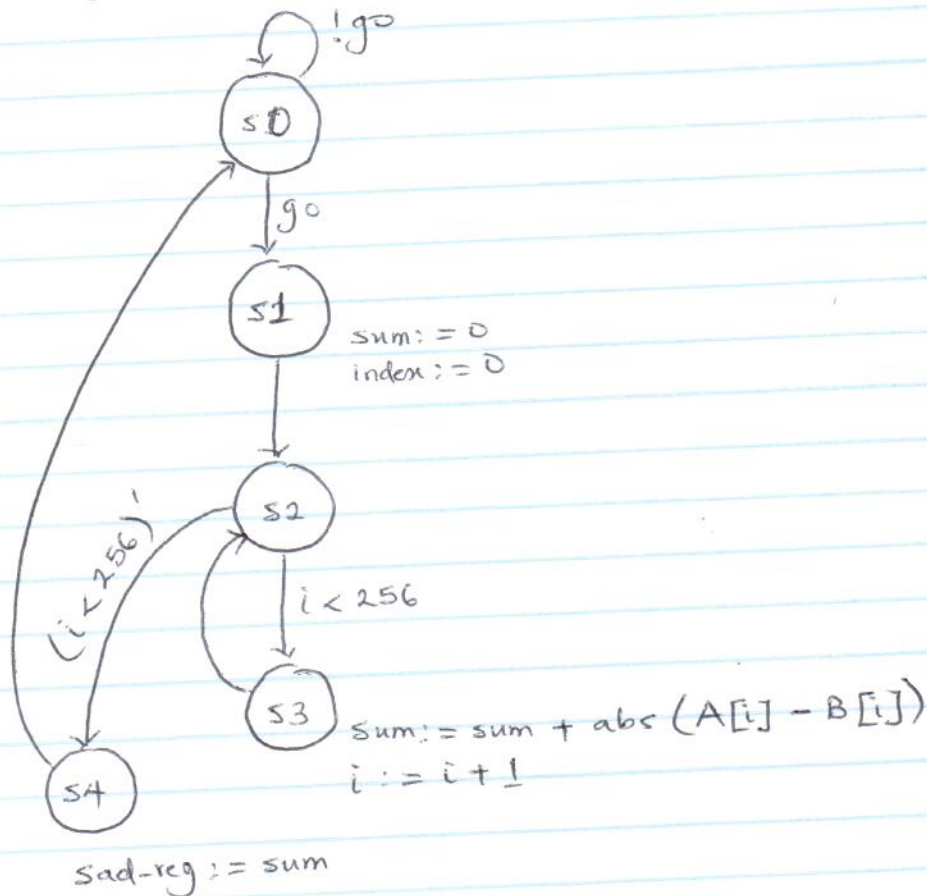 !go
s0
go
s1
sum := 0
index := 0
s2
(i < 256)'
i < 256
s3
sum := sum + abs (A[i] - B[i])
i := i + 1
s4
sad-reg := sum